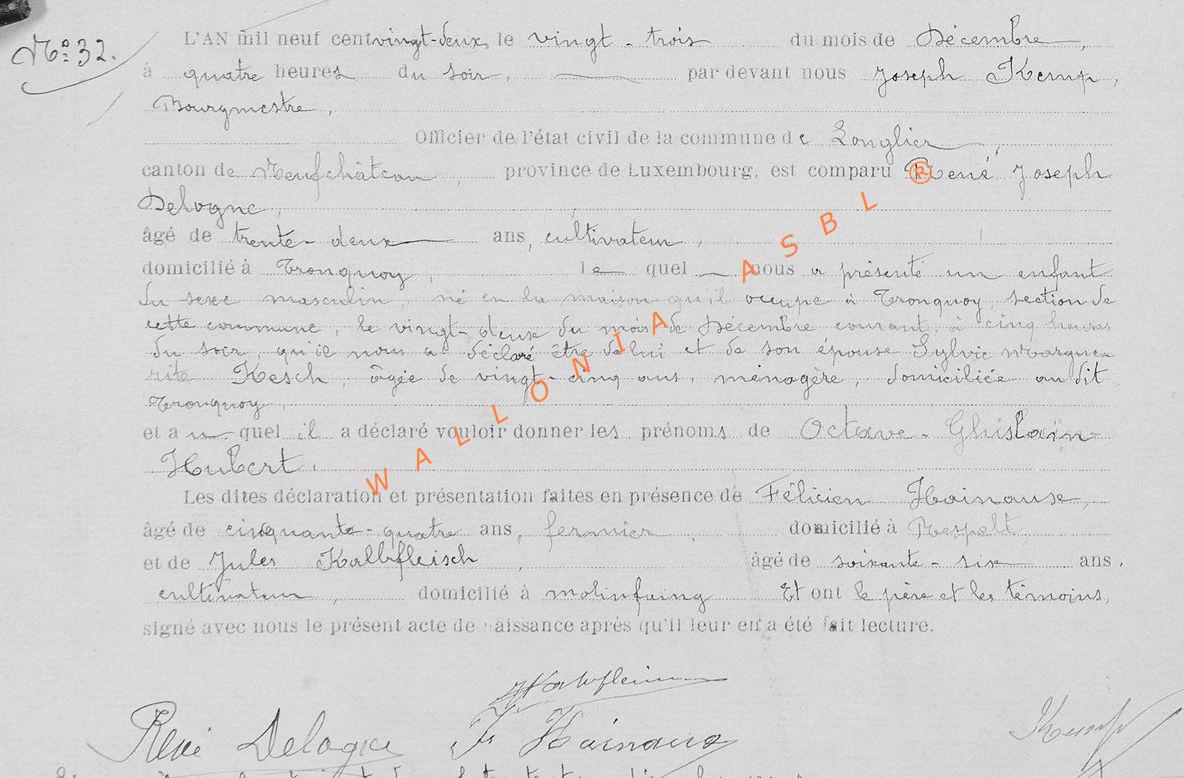 N° 32.
L'AN mil neuf cent vingt-deux, le vingt-trois du mois de Décembre,
à quatre heures du soir, par devant nous Joseph Kemp,
Bourgmestre,
Officier de l'état civil de la commune de Longlier,
canton de Neufchâteau, province de Luxembourg, est comparu René Joseph
Delogne,
âgé de trente-deux ans, cultivateur,
domicilié à Tronquoy, lequel nous a présenté un enfant
du sexe masculin, né en la maison qu'il occupe à Tronquoy, section de
cette commune, le vingt-deux du mois de Décembre courant, à cinq heures
du soir, qu'il nous a déclaré être de lui et de son épouse Sylvie Margue-
rite Kesch, âgée de vingt-cinq ans, ménagère, domiciliée au dit
Tronquoy,
et au quel il a déclaré vouloir donner les prénoms de Octave-Ghislain-
Hubert.
Les dites déclaration et présentation faites en présence de Félicien Hainause,
âgé de cinquante-quatre ans, fermier, domicilié à Respelt
et de Jules Kalbfleisch, âgé de soixante-six ans,
cultivateur, domicilié à molinfaing Et ont le père et les témoins,
signé avec nous le présent acte de naissance après qu'il leur en a été fait lecture.
René Delogne F. Hainaux Kemp
® WALLONIA ASBL